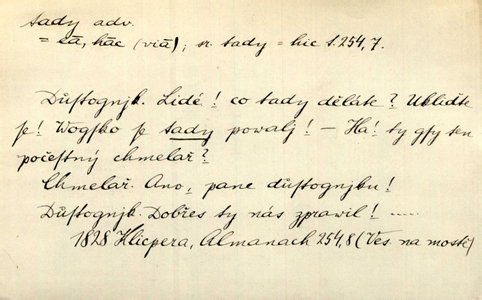 tady adv.
= eā, hāc (viā); sr. tady = hic s. 254, 7.
Důstognjk. Lidé! co tady děláte? Ukliďte
se! Wogsko se tady powalj! – Há! ty gsy ten
počestný chmelař?
Chmelař. Ano, pane důstognjku!
Důstognjk. Dobřes ty nás zprawil! .....
1828 Klicpera, Almanach 254, 8 (Ves. na mostě)